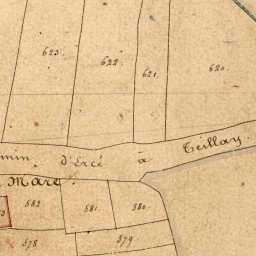 623.
622.
621.
620.
min d'Ercé à Teillay.
Mare
582
581.
580.
578
579